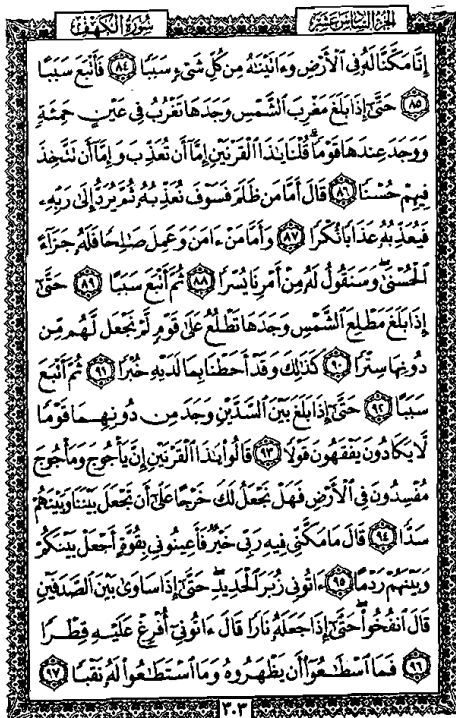 الجزء السادس عشر
سورة الكهف
إِنَّا مَكَّنَّا لَهُۥ فِى ٱلْأَرْضِ وَءَاتَيْنَٰهُ مِن كُلِّ شَىْءٍ سَبَبًا ﴿٨٤﴾ فَأَتْبَعَ سَبَبًا
﴿٨٥﴾ حَتَّىٰٓ إِذَا بَلَغَ مَغْرِبَ ٱلشَّمْسِ وَجَدَهَا تَغْرُبُ فِى عَيْنٍ حَمِئَةٍ
وَوَجَدَ عِندَهَا قَوْمًا ۗ قُلْنَا يَٰذَا ٱلْقَرْنَيْنِ إِمَّآ أَن تُعَذِّبَ وَإِمَّآ أَن تَتَّخِذَ
فِيهِمْ حُسْنًا ﴿٨٦﴾ قَالَ أَمَّا مَن ظَلَمَ فَسَوْفَ نُعَذِّبُهُۥ ثُمَّ يُرَدُّ إِلَىٰ رَبِّهِۦ
فَيُعَذِّبُهُۥ عَذَابًا نُّكْرًا ﴿٨٧﴾ وَأَمَّا مَنْ ءَامَنَ وَعَمِلَ صَٰلِحًا فَلَهُۥ جَزَآءً
ٱلْحُسْنَىٰ ۖ وَسَنَقُولُ لَهُۥ مِنْ أَمْرِنَا يُسْرًا ﴿٨٨﴾ ثُمَّ أَتْبَعَ سَبَبًا ﴿٨٩﴾ حَتَّىٰٓ
إِذَا بَلَغَ مَطْلِعَ ٱلشَّمْسِ وَجَدَهَا تَطْلُعُ عَلَىٰ قَوْمٍ لَّمْ نَجْعَل لَّهُم مِّن
دُونِهَا سِتْرًا ﴿٩٠﴾ كَذَٰلِكَ وَقَدْ أَحَطْنَا بِمَا لَدَيْهِ خُبْرًا ﴿٩١﴾ ثُمَّ أَتْبَعَ
سَبَبًا ﴿٩٢﴾ حَتَّىٰٓ إِذَا بَلَغَ بَيْنَ ٱلسَّدَّيْنِ وَجَدَ مِن دُونِهِمَا قَوْمًا
لَّا يَكَادُونَ يَفْقَهُونَ قَوْلًا ﴿٩٣﴾ قَالُوا۟ يَٰذَا ٱلْقَرْنَيْنِ إِنَّ يَأْجُوجَ وَمَأْجُوجَ
مُفْسِدُونَ فِى ٱلْأَرْضِ فَهَلْ نَجْعَلُ لَكَ خَرْجًا عَلَىٰٓ أَن تَجْعَلَ بَيْنَنَا وَبَيْنَهُمْ
سَدًّا ﴿٩٤﴾ قَالَ مَا مَكَّنِّى فِيهِ رَبِّى خَيْرٌ فَأَعِينُونِى بِقُوَّةٍ أَجْعَلْ بَيْنَكُمْ
وَبَيْنَهُمْ رَدْمًا ﴿٩٥﴾ ءَاتُونِى زُبَرَ ٱلْحَدِيدِ ۖ حَتَّىٰٓ إِذَا سَاوَىٰ بَيْنَ ٱلصَّدَفَيْنِ
قَالَ ٱنفُخُوا۟ ۖ حَتَّىٰٓ إِذَا جَعَلَهُۥ نَارًا قَالَ ءَاتُونِىٓ أُفْرِغْ عَلَيْهِ قِطْرًا
﴿٩٦﴾ فَمَا ٱسْطَٰعُوٓا۟ أَن يَظْهَرُوهُ وَمَا ٱسْتَطَٰعُوا۟ لَهُۥ نَقْبًا ﴿٩٧﴾
٣٠٣